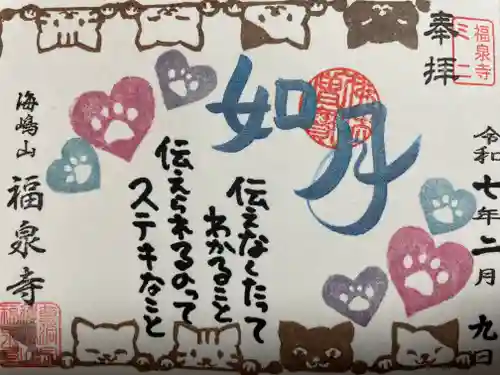 奉拝
福泉寺
ミニ
令和七年二月九日
如月
伝えなくたって
わかること
伝えられるのって
ステキなこと
海嶋山
福泉寺